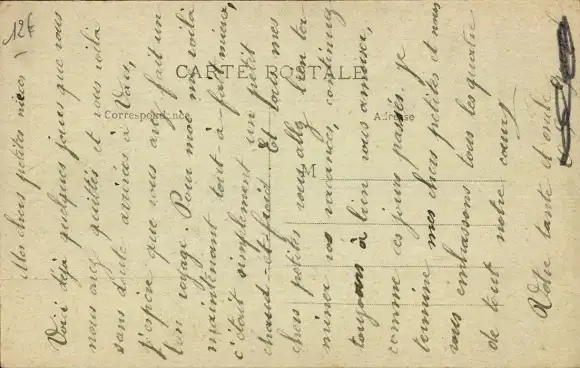 12f
CARTE POSTALE
Correspondance
Adresse
M
Mes chères petites nièces
Voici déjà quelques jours que vous
nous avez quittés et vous voilà
sans doute arrivées à
J'espère que vous avez fait un
bon voyage. Pour moi me voilà
maintenant tout-à-fait mieux,
c'était simplement un petit
chaud-et-froid. Et vous mes
chères petites vous allez bientôt
vos vacances, continuez
toujours à bien vous amuser,
comme ces jours passés. Je
termine mes chères petites et nous
vous embrassons tous les quatre
de tout notre cœur
Votre tante et oncle